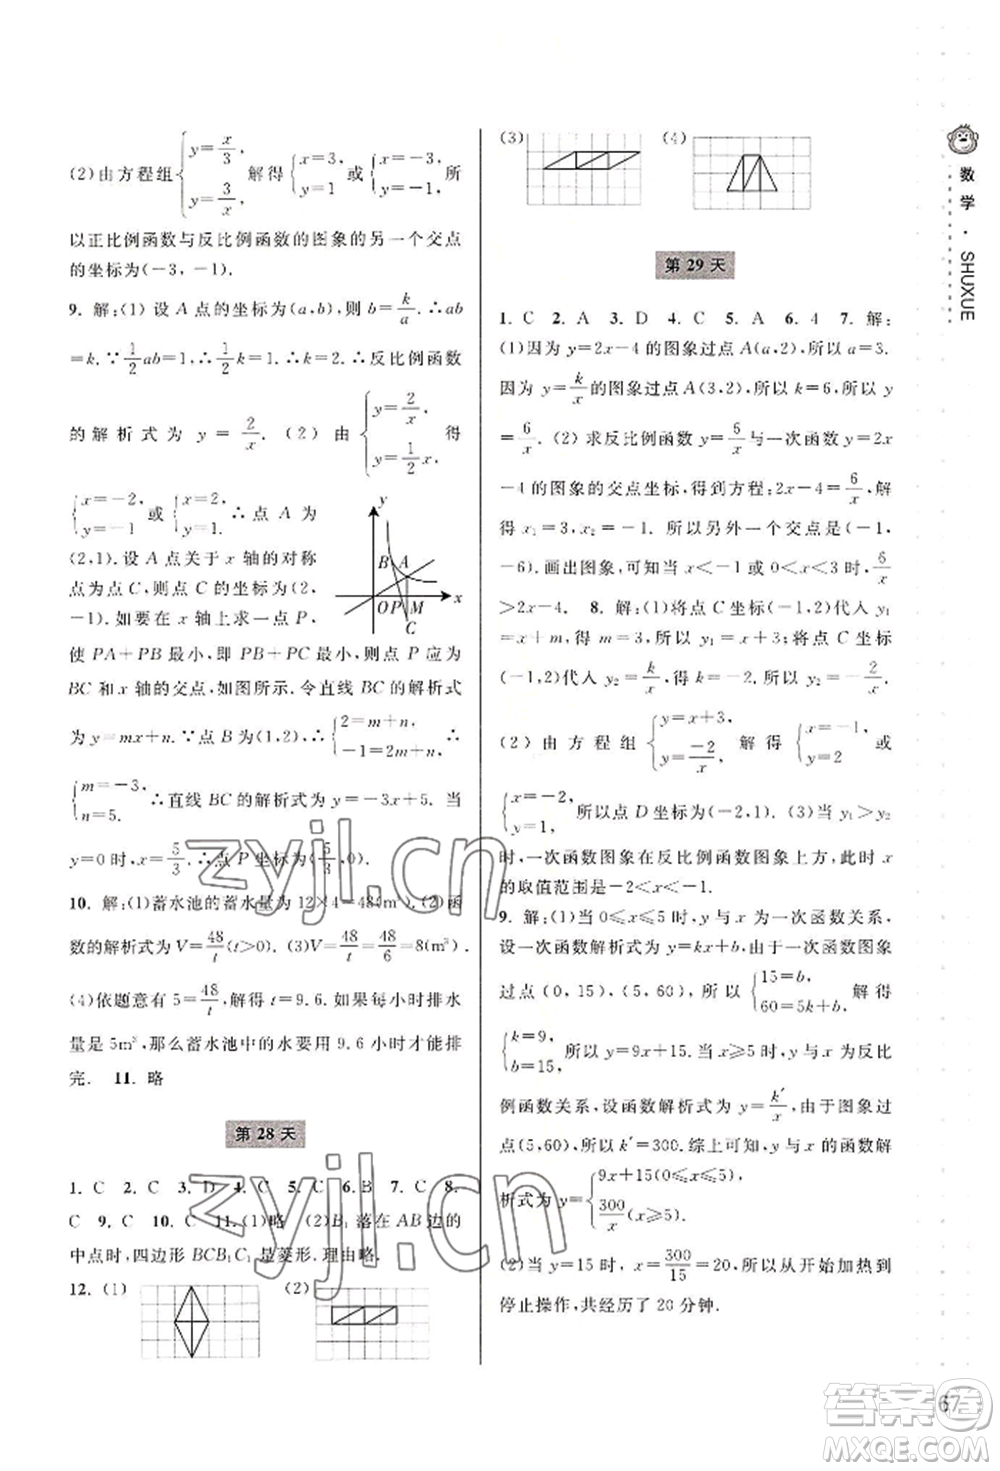 (2)由方程组{y=x/3, y=3/x 解得{x=3, y=1 或{x=-3, y=-1, 所
以正比例函数与反比例函数的图象的另一个交点
的坐标为(-3,-1).
9. 解:(1)设A点的坐标为(a,b),则b=k/a.∴ab
=k.∵1/2ab=1.∴k=2.∴反比例函数
的解析式为 y=2/x. (2)由{y=2/x, y=1/2x 得
{x=-2, y=-1 或{x=2, y=1, ∴点A为
(2,1).设A点关于x轴的对称
点为点C,则点C的坐标为(2,
-1).如要在x轴上求一点P,
y
B A
O P M x
C
使PA+PB最小,即PB+PC最小,则点P应为
BC和x轴的交点,如图所示.令直线BC的解析式
为y=mx+n.∵点B为(1,2),∴{2=m+n, -1=2m+n, ∴
{m=-3, n=5. ∴直线BC的解析式为y=-3x+5. 当
y=0时,x=5/3.∴点P坐标为(5/3,0).
10. 解:(1)蓄水池的蓄水量为12×4=48(m³).(2)函
数的解析式为V=48/t(t>0). (3)V=48/6=8(m³).
(4)依题意有5=48/t,解得t=9.6.如果每小时排水
量是5m³,那么蓄水池中的水要用9.6小时才能排
完. 11. 略
第28天
1. C 2. C 3. D 4. C 5. C 6. B 7. C 8.
C 9. C 10. C 11.(1)略 (2)B₁落在AB边的
中点时,四边形BCB₁C₁是菱形.理由略.
12. (1) (2)
(3) (4)
第29天
1. C 2. A 3. D 4. C 5. A 6. 4 7. 解:
(1)因为y=2x-4的图象过点A(a,2),所以a=3.
因为y=k/x的图象过点A(3,2),所以k=6,所以y
=6/x. (2)求反比例函数y=6/x与一次函数y=2x
-4的图象的交点坐标,得到方程:2x-4=6/x,解
得x₁=3,x₂=-1. 所以另外一个交点是(-1,
-6).画出图象,可知当x<-1或0<x<3时,6/x
>2x-4. 8. 解:(1)将点C坐标(-1,2)代入y₁
=x+m,得m=3,所以y₁=x+3;将点C坐标
(-1,2)代入y₂=k/x,得k=-2.所以y₂=-2/x.
(2)由方程组{y=x+3, y=-2/x 解得{x=-1, y=2 或
{x=-2, y=1, 所以点D坐标为(-2,1).(3)当y₁>y₂
时,一次函数图象在反比例函数图象上方,此时x
的取值范围是-2<x<-1.
9. 解:(1)当0≤x≤5时,为一次函数关系,
设一次函数解析式为y=kx+b,由于一次函数图象
过点(0,15),(5,60),所以{15=b, 60=5k+b 解得
{k=9, b=15. 所以y=9x+15.当x≥5时,为反比
例函数关系,设函数解析式为y=k′/x,由于图象过
点(5,60),所以k′=300.综上可知,y与x的函数解
析式为y={9x+15(0≤x≤5), 300/x(x≥5).
(2)当y=15时,x=300/15=20,所以从开始加热到
停止操作,共经历了20分钟.
数学·SHUXUE
67
zyjl.cn
zyjl.cn
答案圈
MXQE.COM